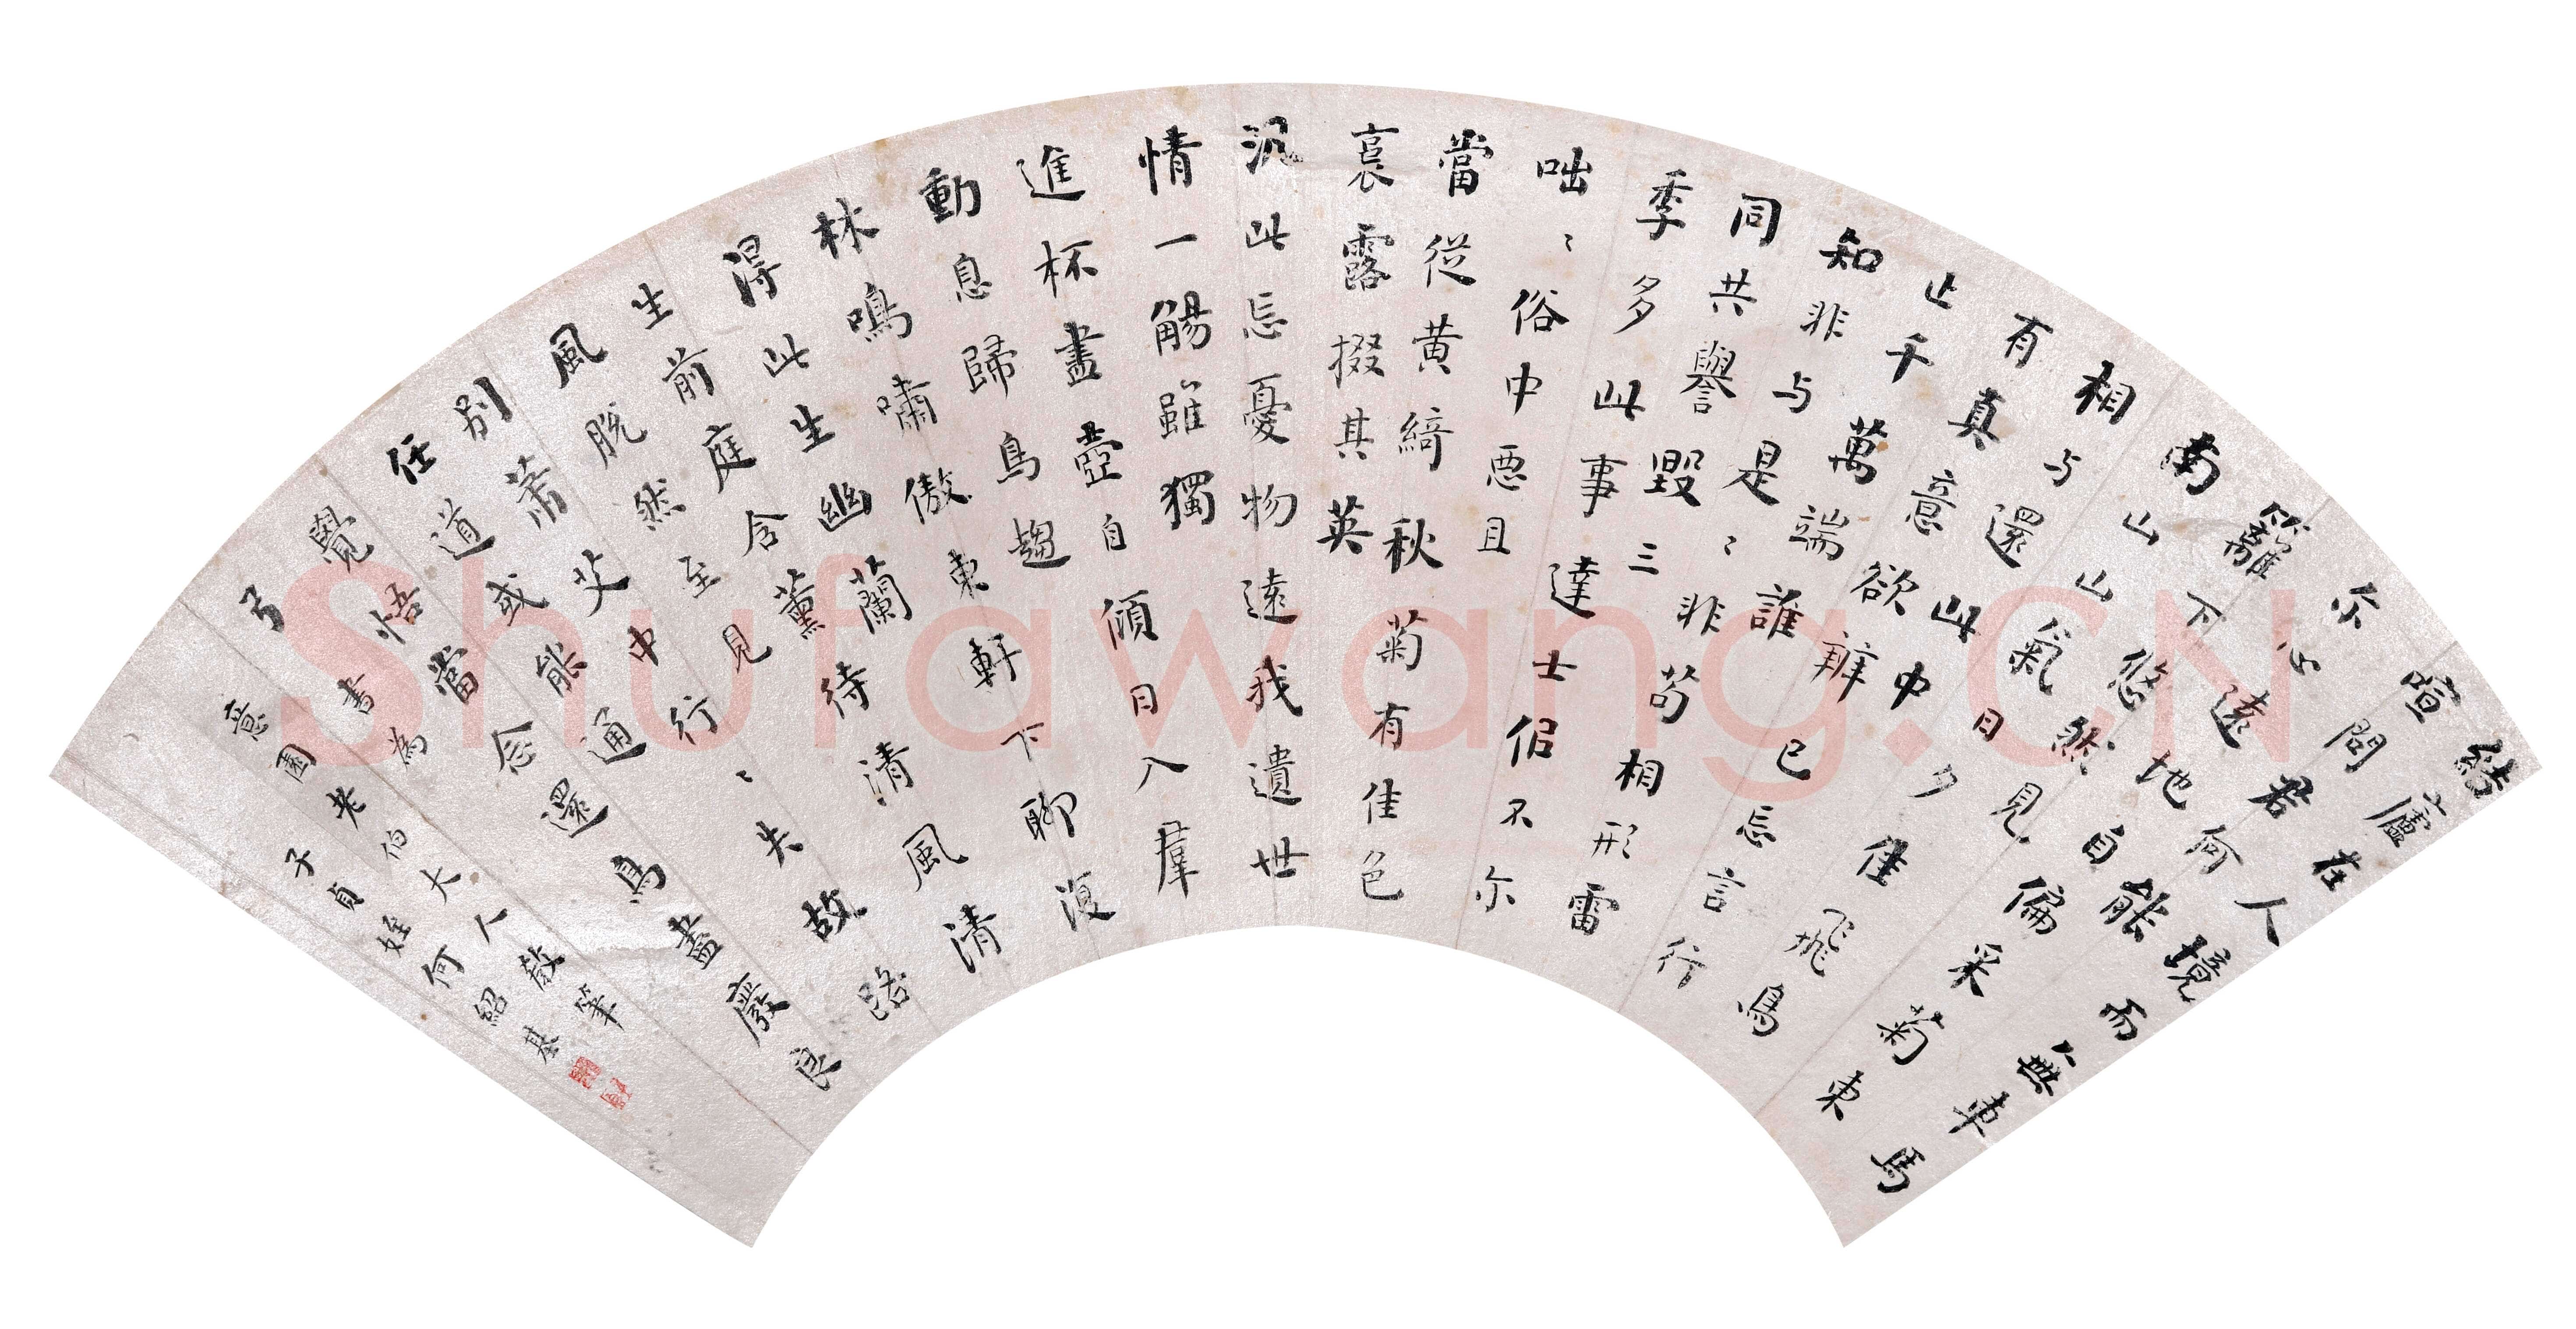 結廬在人境而無車馬
喧問君何能
尒心遠地自偏采菊東
籬下悠然見
南山山氣日夕佳飛鳥
相与還此中
有真意欲辨已忘言行
止千萬端誰
知非与是〻非苟相形雷
同共譽毀三
季多此事達士佀不尒
咄〻俗中惡且
當從黃綺秋菊有佳色
裛露掇其英
汎此忘憂物遠我遺世
情一觴雖獨
進杯盡壺自傾日入羣
動息歸鳥趨
林鳴嘯傲東軒下聊復
得此生幽蘭
生前庭含薰待清風清
風脫然至見
別蕭艾中行〻失故路
任道或能通
覺悟當念還鳥盡廢良
弓 書為
意園老伯大人教筆
子貞姪何紹基
Shufawang.CN